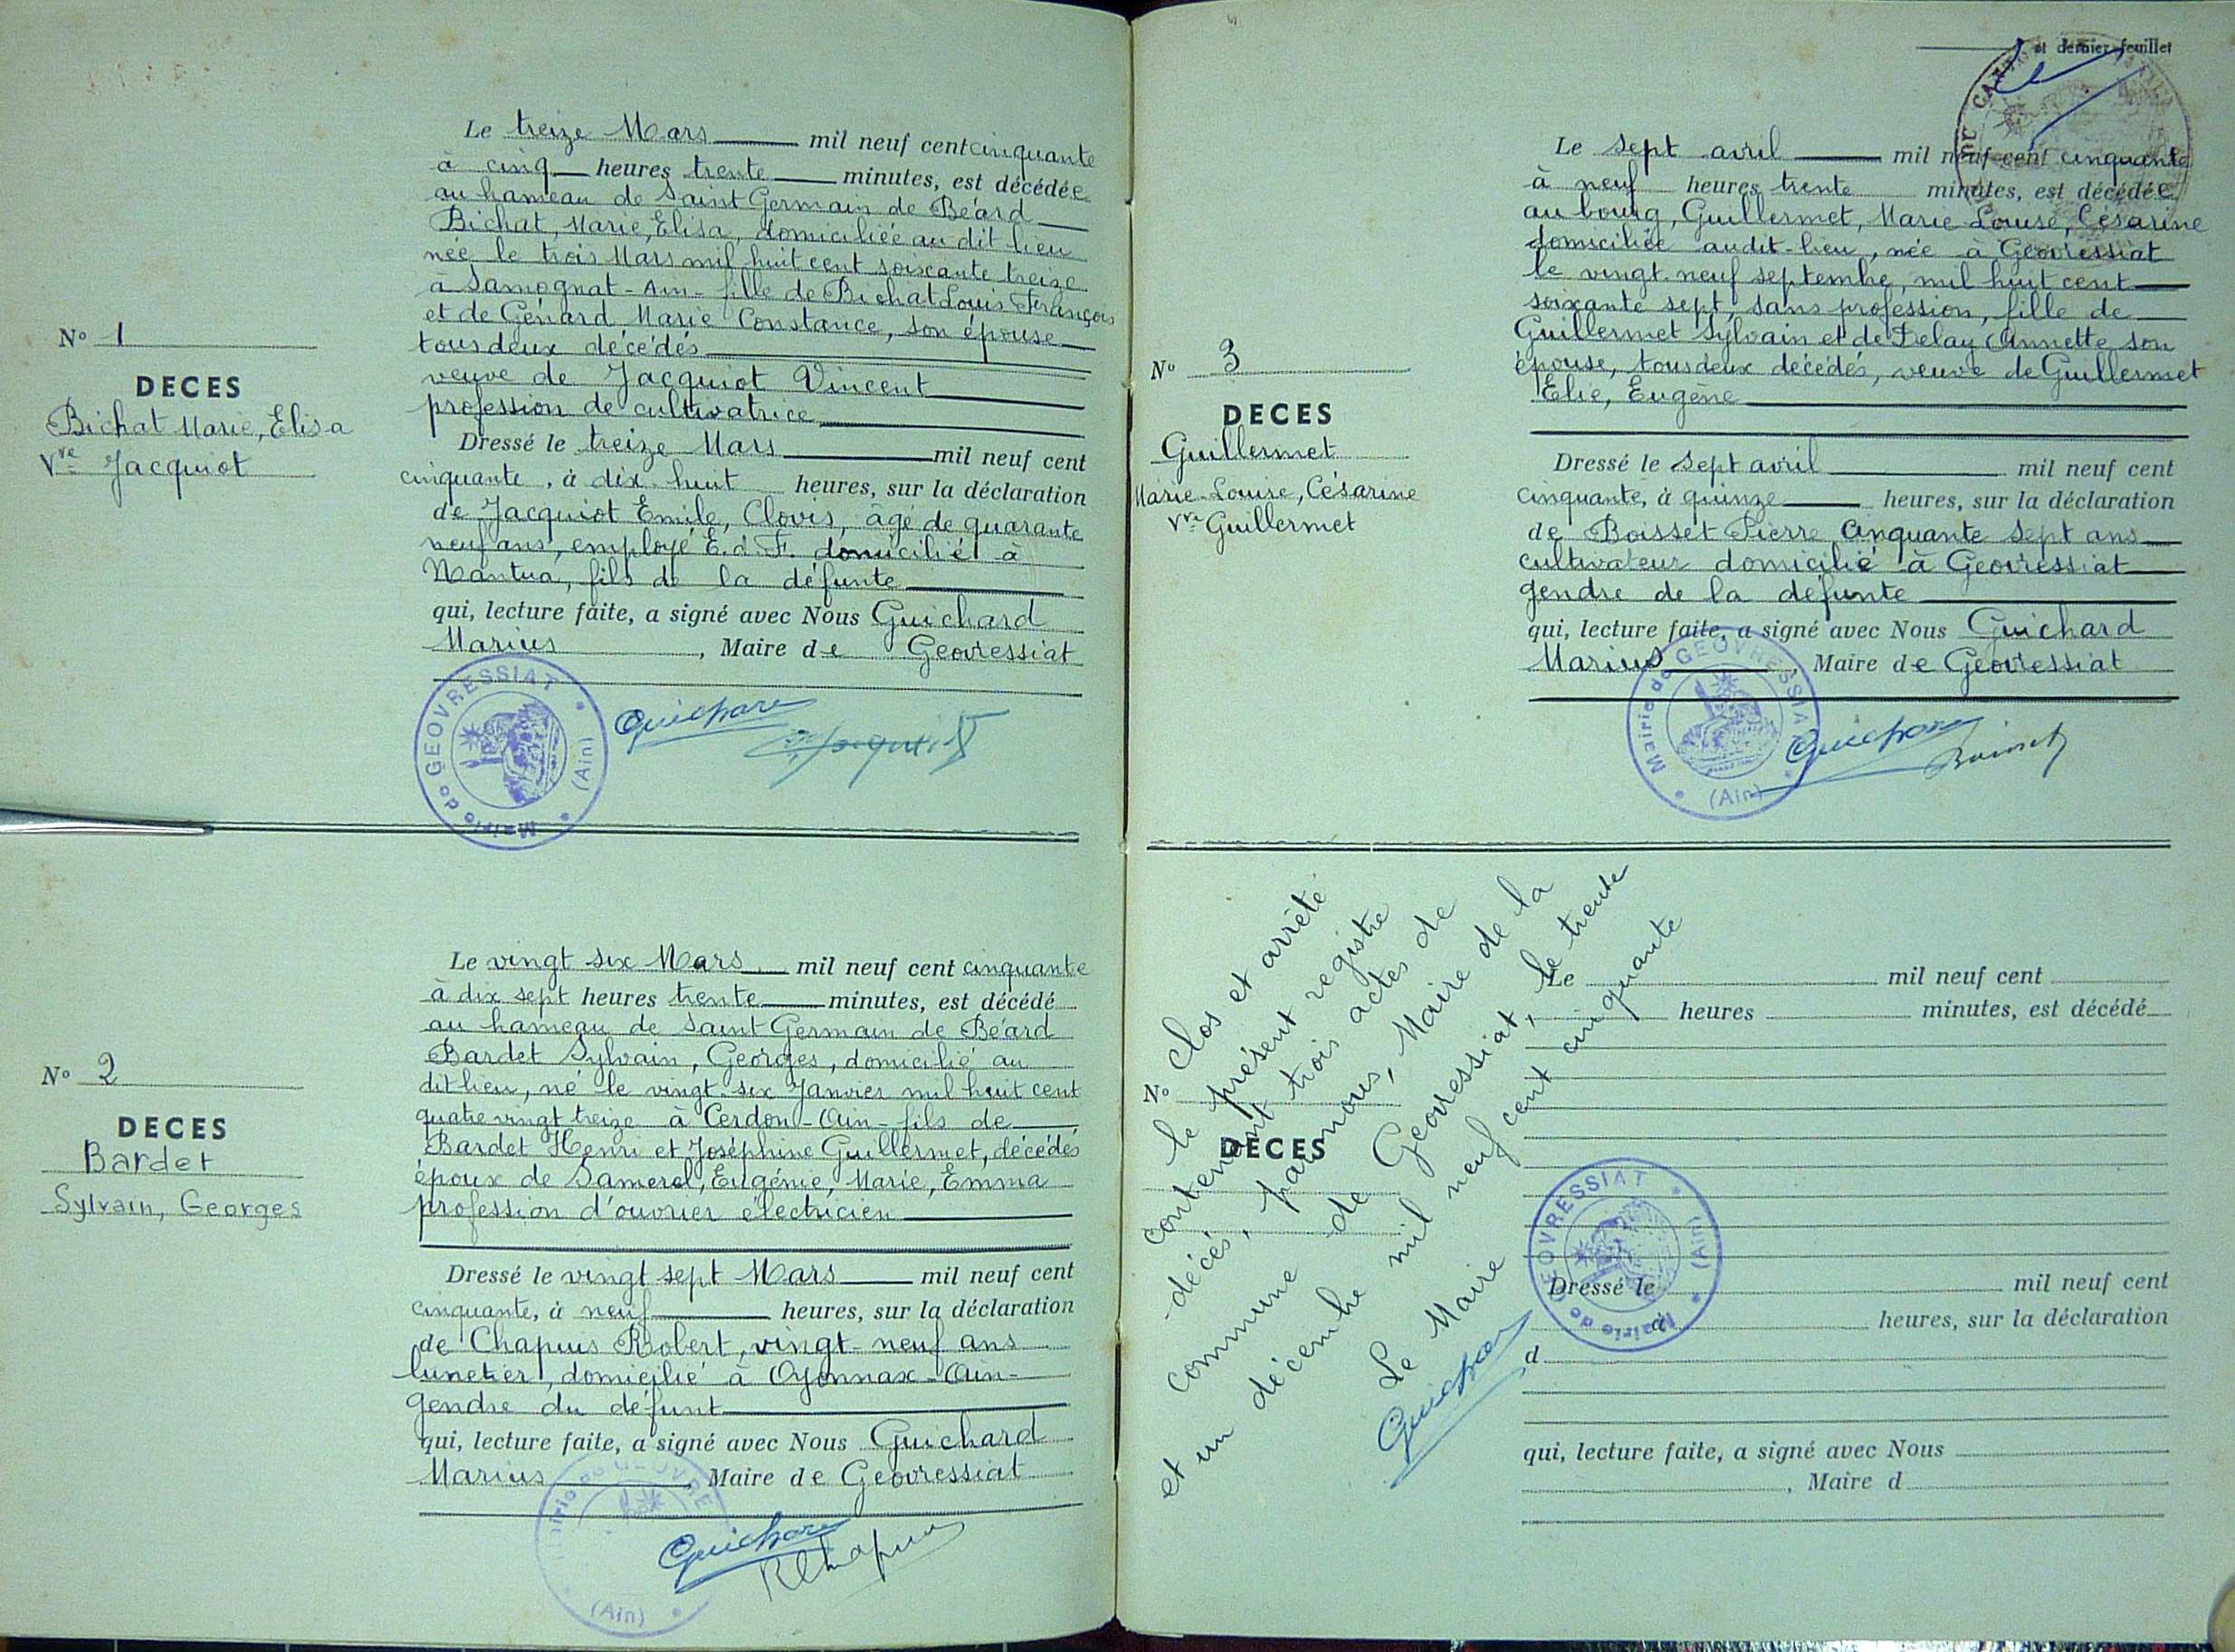 Le treize Mars mil neuf cent cinquante
à cinq heures trente minutes, est décédée
au hameau de Saint Germain de Béard
Bichat, Marie, Elisa, domiciliée au dit lieu
née le trois Mars mil huit cent soixante treize
à Samognat - Ain - fille de Bichat Louis François
et de Génard Marie Constance, son épouse
tous deux décédés
veuve de Jacquiot Vincent
profession de cultivatrice
N° 1
DECES
Bichat Marie, Elisa
Vve Jacquiot
Dressé le treize Mars mil neuf cent
cinquante, à dix-huit heures, sur la déclaration
de Jacquiot Emile, Clovis, âgé de quarante
neuf ans, employé E.d.F. domicilié à
Nantua, fils de la défunte
qui, lecture faite, a signé avec Nous Guichard
Marius, Maire de Geovressiat
Mairie de GEOVRESSIAT (Ain)
Guichard
Jacquiot
Le vingt six Mars mil neuf cent cinquante
à dix sept heures trente minutes, est décédé
au hameau de Saint Germain de Béard
Bardet Sylvain, Georges, domicilié au
dit lieu, né le vingt-six Janvier mil huit cent
quatre vingt treize à Cerdon - Ain - fils de
Bardet Henri et Joséphine Guillermet, décédés
époux de Samerel, Eugénie, Marie, Emma
profession d'ouvrier électricien
N° 2
DECES
Bardet
Sylvain, Georges
Dressé le vingt sept Mars mil neuf cent
cinquante, à neuf heures, sur la déclaration
de Chapuis Robert, vingt-neuf ans
lunetier, domicilié à Oyonnax - Ain -
gendre du défunt
qui, lecture faite, a signé avec Nous Guichard
Marius, Maire de Geovressiat
Guichard
R Chapuis
(Ain)
et dernier feuillet
Le sept avril mil neuf cent cinquante
à neuf heures trente minutes, est décédée
au bourg, Guillermet, Marie-Louise, Césarine
domiciliée audit-lieu, née à Geovressiat
le vingt-neuf septembre, mil huit cent
soixante sept, sans profession, fille de
Guillermet Sylvain et de Delay Annette son
épouse, tous deux décédés, veuve de Guillermet
Elie, Eugène
N° 3
DECES
Guillermet
Marie-Louise, Césarine
Vve Guillermet
Dressé le sept avril mil neuf cent
cinquante, à quinze heures, sur la déclaration
de Boisset Pierre, cinquante sept ans
cultivateur domicilié à Geovressiat
gendre de la défunte
qui, lecture faite, a signé avec Nous Guichard
Marius, Maire de Geovressiat
Mairie de GEOVRESSIAT (Ain)
Guichard
Boisset
Clos et arrêté
le présent registre
contenant trois actes de
décès, par nous, Maire de la
commune de Geovressiat, le trente
et un décembre mil neuf cent cinquante
Le Maire
Guichard
N°
DECES
Le mil neuf cent
heures minutes, est décédé
Mairie de GEOVRESSIAT (Ain)
Dressé le mil neuf cent
à heures, sur la déclaration
d
qui, lecture faite, a signé avec Nous
, Maire d